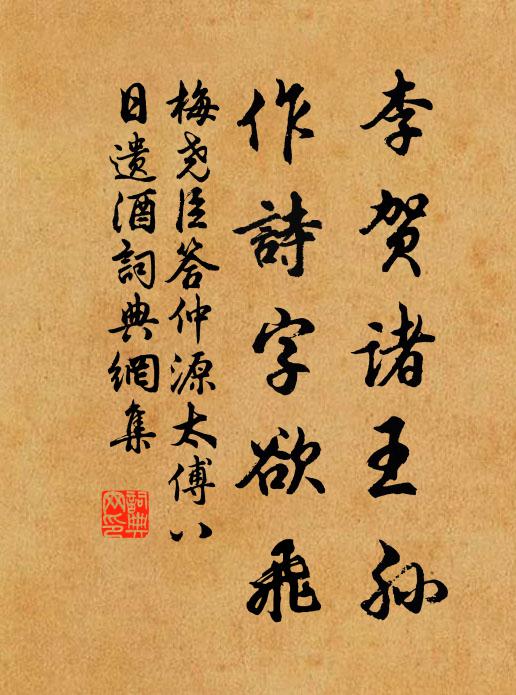 李贺诸王孙
作詩字欲飛
梅尧臣答仲源太傅八
日遗酒詞典網集
詞典网印